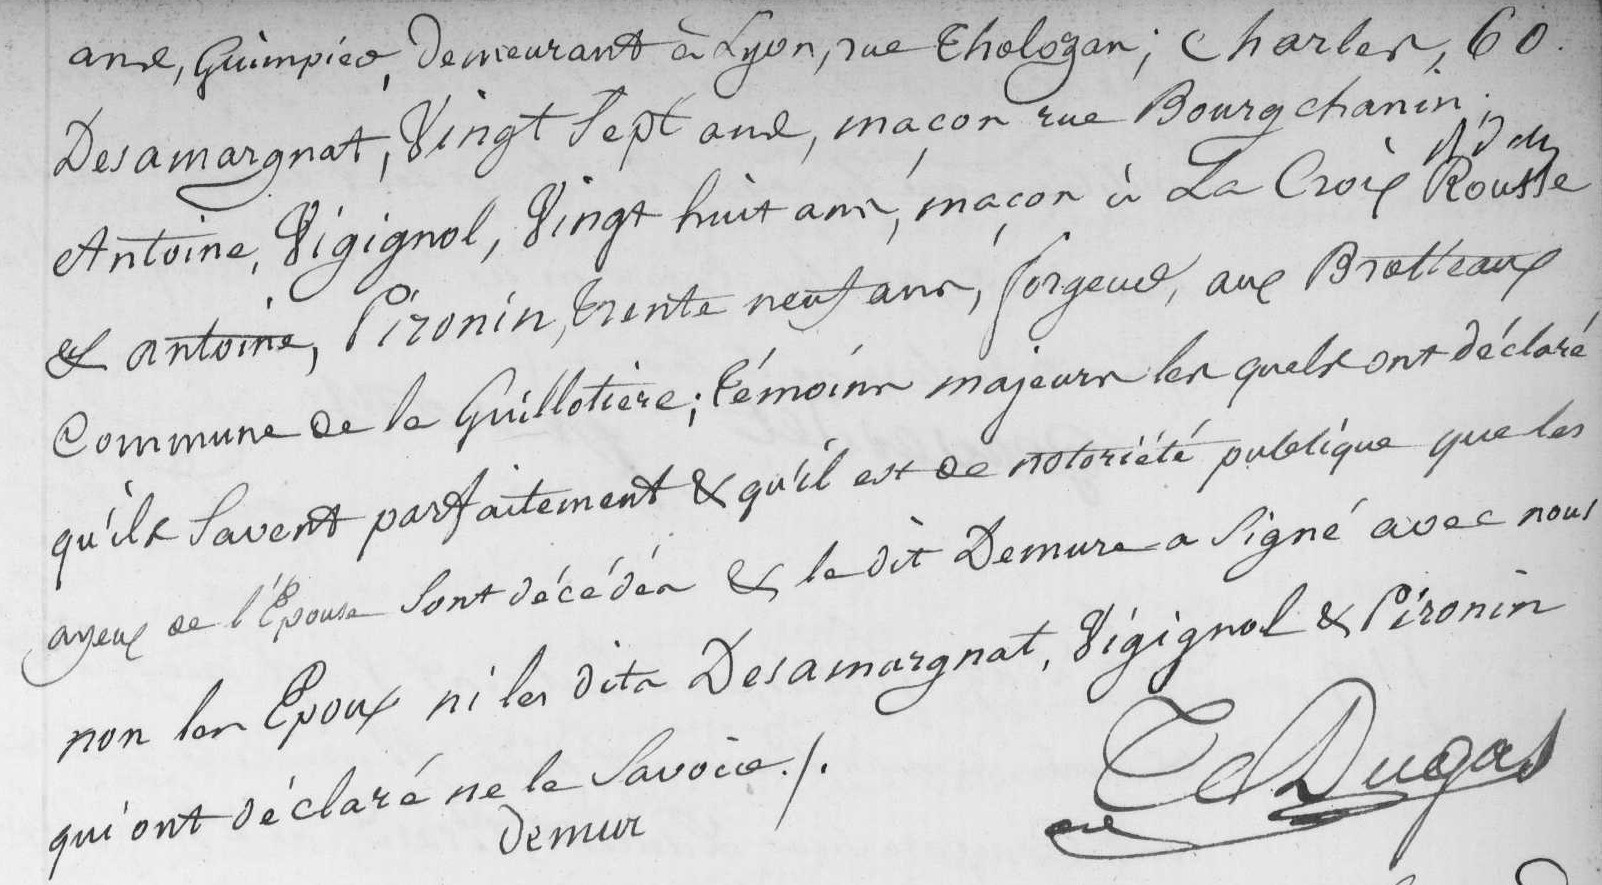 ans, Guimpier, Demeurant à Lyon, rue Tholozan; Charles, 60.
Desamargnat, Vingt Sept ans, maçon rue Bourgchanin;
Antoine, Vigignol, Vingt huit ans, maçon à La Croix Rousse
& antoine, Pironin, Trente neuf ans, forgeur, aux Brotteaux
Commune de la Guillotiere; témoins majeurs les quels ont déclaré
qu'ils Savent parfaitement & qu'il est de notoriété publique que les
ayeux de l'Epouse Sont décédés & le dit Demure a Signé avec nous
non les Epoux ni les dits Desamargnat, Vigignol & Pironin
qui ont déclaré ne le Savoir./.
demur
Dugas